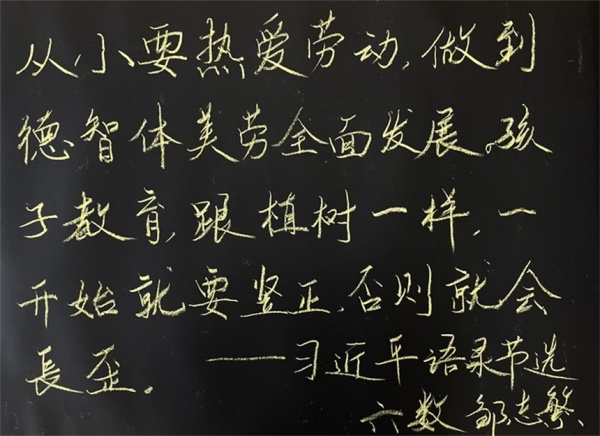 从小要热爱劳动,做到
德智体美劳全面发展。孩
子教育,跟植树一样,一
开始就要竖正,否则就会
長歪。 ——习近平语录节选
六数 邹志繁